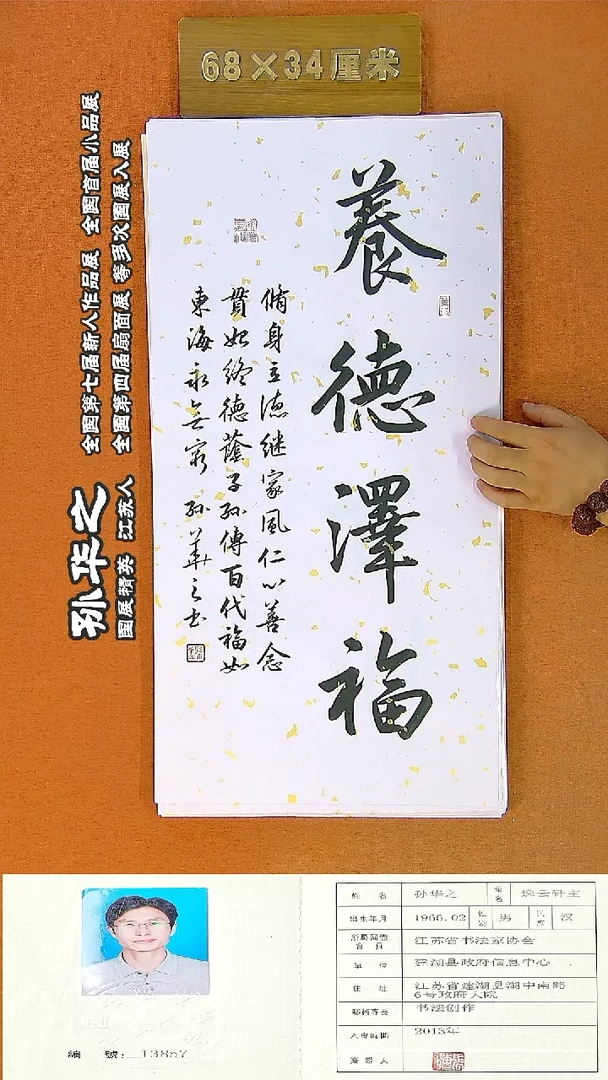 68×34厘米
養德澤福
脩身立德继家風仁心善念
貫始终德蔭子孙傳百代福如
東海永無窮 孙華之书
孙华之
国展精英 江苏人
全国第七届新人作品展 全国首届小品展
全国第四届扇面展 等多次国展入展
姓名 孙华之
出生年月 1966.02 性别 男 民族 汉
江苏省书法家协会
单位 建湖县政府信息中心
住址 江苏省建湖县湖中南路
6号政府大院
书法创作
2013年
编号：13857